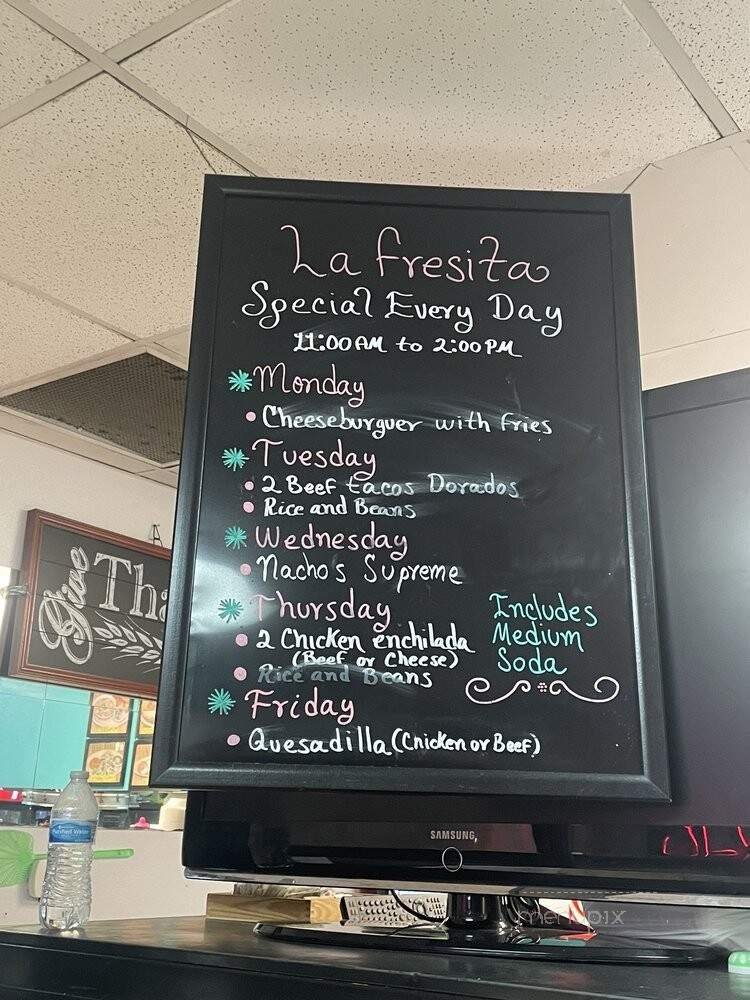 La fresita
Special Every Day
11:00AM to 2:00PM
Monday
Cheeseburguer with fries
Tuesday
2 Beef tacos Dorados
Rice and Beans
Wednesday
Nacho's Supreme
Thursday
2 Chicken enchilada
(Beef or Cheese)
Rice and Beans
Includes
Medium
Soda
Friday
Quesadilla (Chicken or Beef)
Give Tha
Purified Water
SAMSUNG
menupix